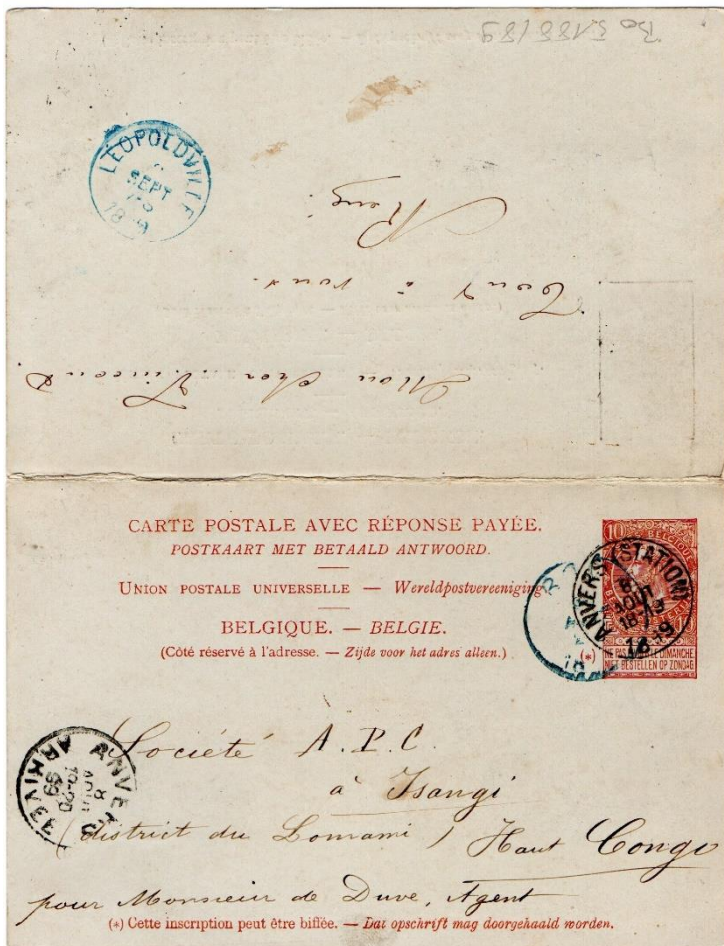 Bo 5188/89
LEOPOLDVILLE
SEPT
18
Mon cher Vincent.
Tout à vous.
CARTE POSTALE AVEC RÉPONSE PAYÉE.
POSTKAART MET BETAALD ANTWOORD.
UNION POSTALE UNIVERSELLE — Wereldpostvereeniging
BELGIQUE. — BELGIE.
(Côté réservé à l'adresse. — Zijde voor het adres alleen.)
10
BELGIQUE
ANVERS (STATION)
8
AOUT
18-19
1899
(*)
NE PAS LIVRER LE DIMANCHE
NIET BESTELLEN OP ZONDAG
ANVERS
8
AOUT
99
ARRIVÉE
Société A. P. C.
à Isangi
(district du Lomami) Haut Congo
pour Monsieur de Duve, Agent
(*) Cette inscription peut être biffée. — Dat opschrift mag doorgehaald worden.